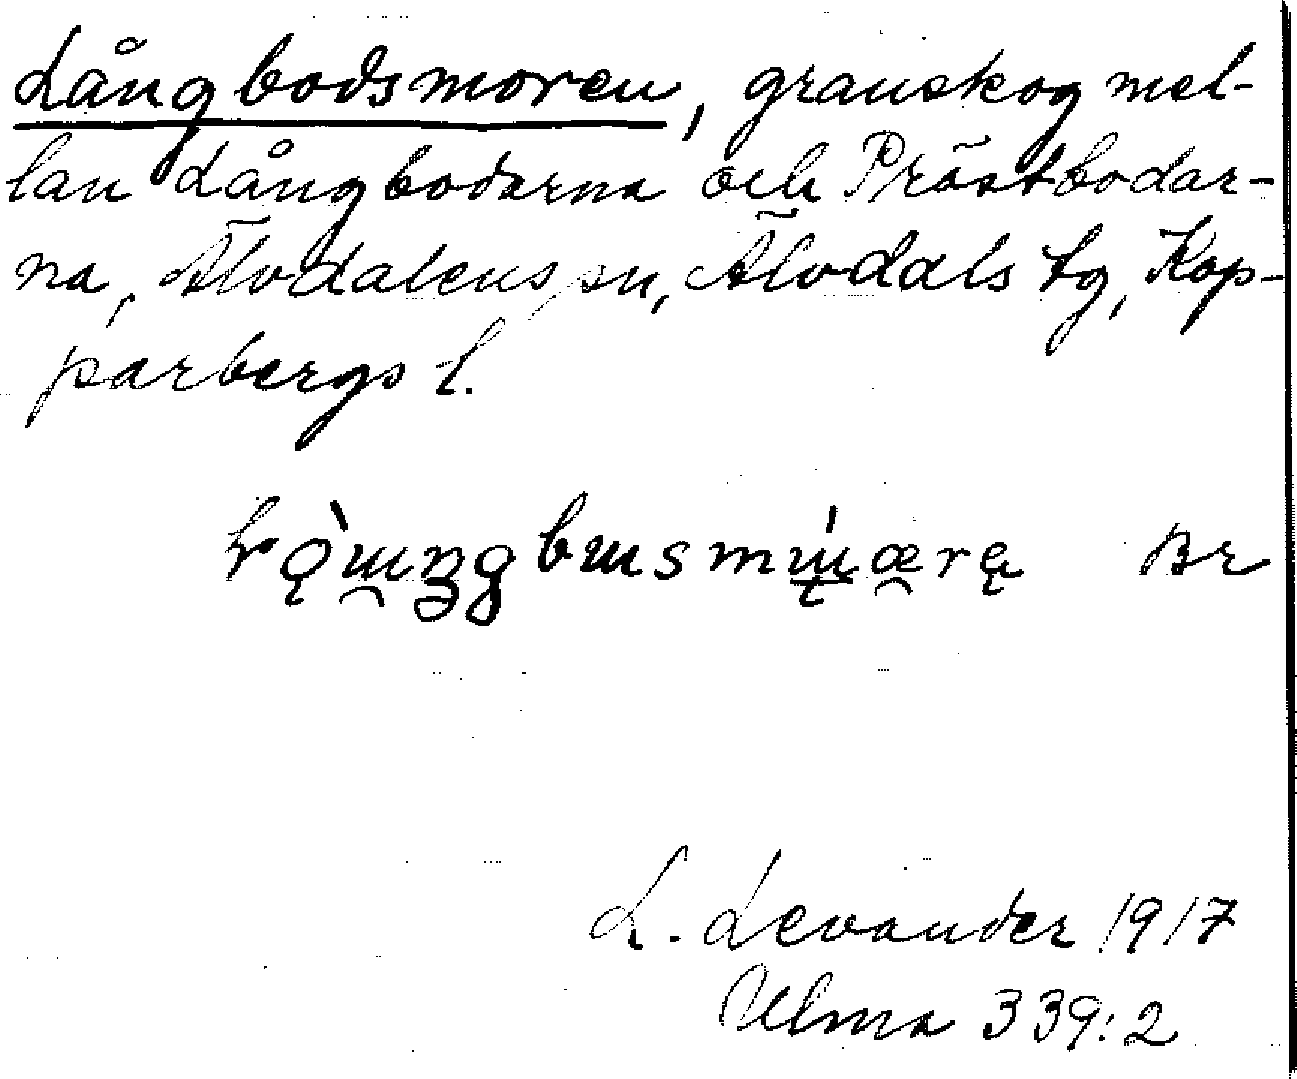 Långbodsmoren, granskog mel-
lan Långbodarna och Prästbodar-
na, Älvdalens sn, Älvdals tg, Kop-
parbergs l.
Br
L. Levander 1917
Ulma 339:2